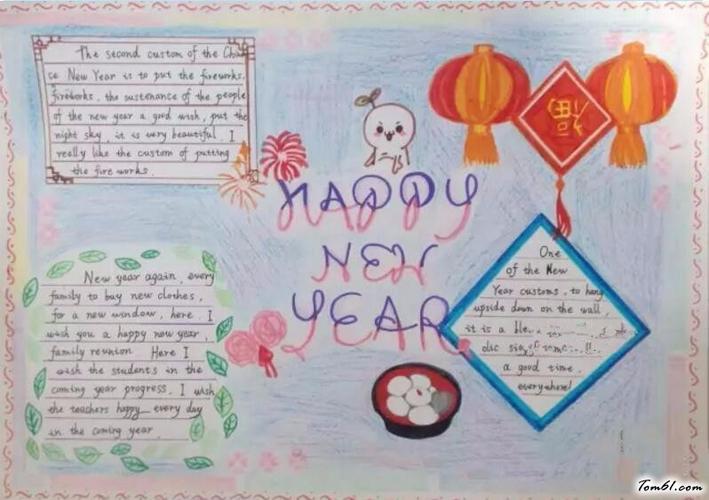 The second custom of the Chi
ce New Year is to put the fireworks.
fireworks, the sustenance of the people
of the new year a good wish, put the
night sky, it is very beautiful. I
really like the custom of putting
the fire works.
福
HAPPY
NEW
YEAR
One
of the New
Year customs, to hang
upside down on the wall,
it is a
a good time.
everywhere!
New year again, every
family to buy new clothes,
for a new window, here I
wish you a happy new year,
family reunion. Here I
wish the students in the
coming year progress. I wish
the teachers happy every day
in the coming year.
Tom61.com